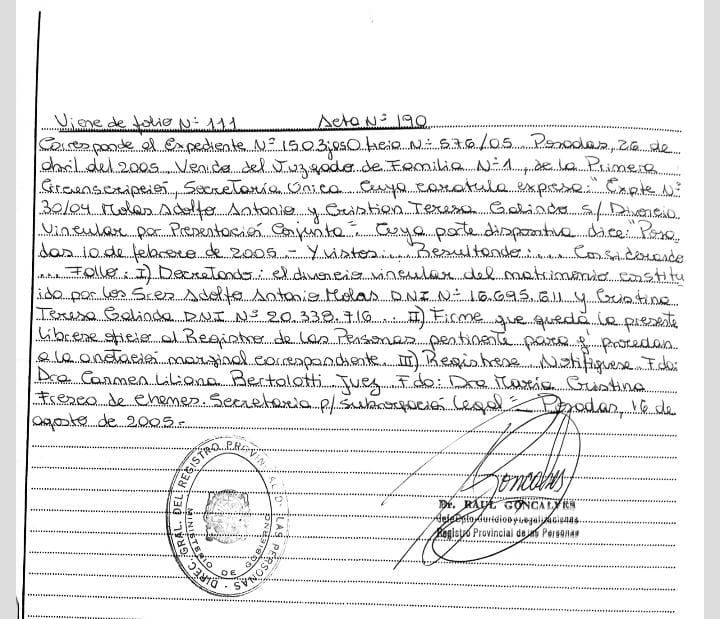 Viene de folio Nº 111 Acta Nº 190
Corresponde al Expediente Nº 1503j050.ficio Nº 576/05 Posadas, 26 de
abril del 2005. Venido del Juzgado de Familia Nº 1, de la Primera
Circunscripción, Secretaría Única. Cuya caratula expresa: "Expte Nº
30/04 Molas Adolfo Antonio y Cristian Teresa Galindo s/ Divorcio
Vincular por Presentación Conjunta". Cuya parte dispositiva dice: "Posa
das 10 de febrero de 2005.- Y vistos:... Resultando:.... Considerando
.... Fallo: I) Decretando: el divorcio vincular del matrimonio constitu
ido por los Sres Adolfo Antonio Molas DNI Nº 16.695.611 y Cristina
Teresa Galindo DNI Nº 20.338.716... II) Firme que queda la presente
Librese oficio al Registro de las Personas pertinente para q' procedan
a la anotació marginal correspondiente. III) Registrese Notifiquese. Fdo:
Dra Carmen Liliana Bertolotti Juez Fdo: Dra María Cristina
Fresco de Chemes. Secretaria p/ Subrogació Legal"= Posadas, 16 de
agosto de 2005.-
DIREC. GRAL. DEL REGISTRO PROVINCIAL DE LAS PERSONAS -
MINISTERIO DE GOBIERNO
Goncalves
Dr. RAUL GONCALVES
Jefe Dpto. Jurídico y Legalizaciones
Registro Provincial de las Personas